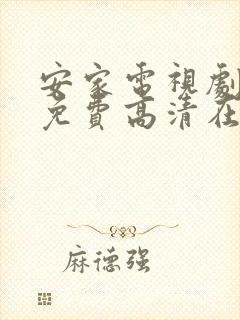 安家電視劇
免費高清在
麻德强